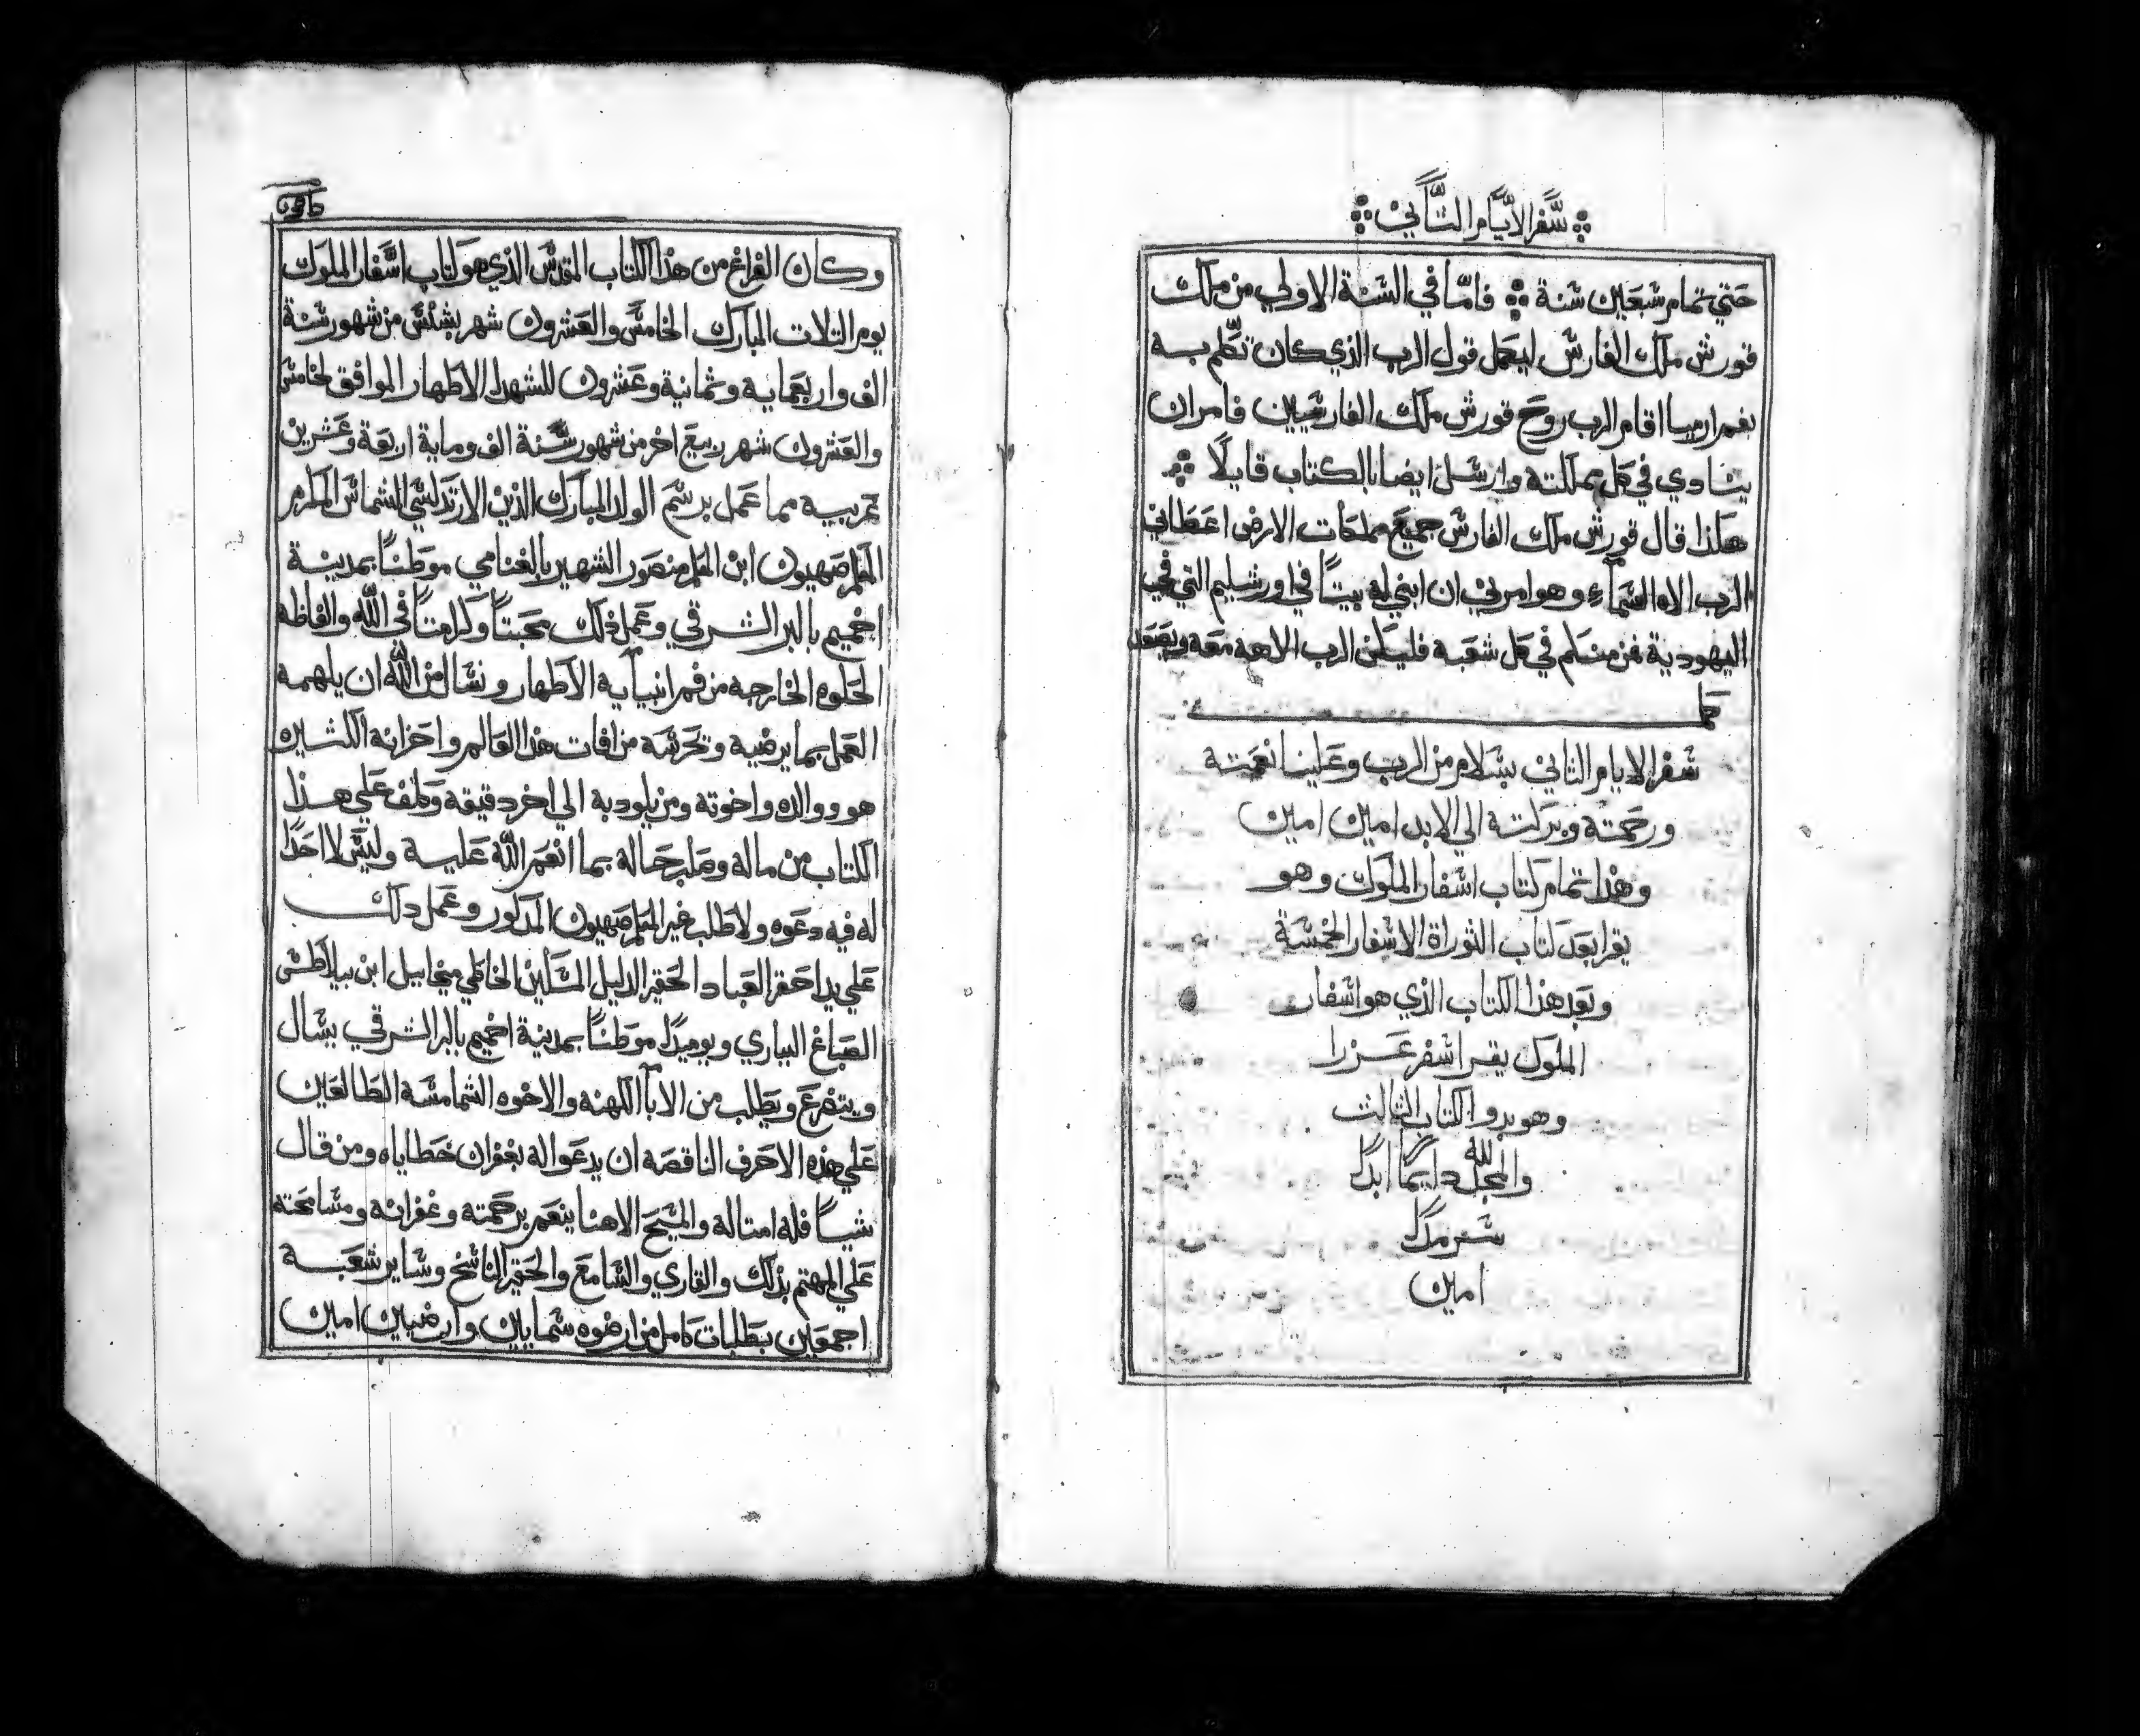 سفر الايام التاني
حتي تمام سبعين سنة فاما في السنة الاولي من ملك
قورش ملك الفارس ليعمل قول الرب الذي كان تكلم به
بفم ارميا اقام الرب روح قورش ملك الفارسيين فامر ان
ينادي في كل مملكته وارسل ايضا بالكتاب قايلا
هكذا قال قورش ملك الفارس جميع مملكات الارض اعطاني
الرب الاه السماء وهو امرني ان ابني له بيتا في اورشليم التي في
اليهودية فمن منكم في كل شعبه فليكن الرب الاهه معه ويصعد
كمل
سفر الايام التاني بسلام من الرب وعلينا نعمته
ورحمته وبركته الي الابد امين امين
وهذا تمام كتاب اسفار الملوك وهو
يقرا بعد كتاب التوراة الاسفار الخمسة
وبعد هذا الكتاب الذي هو اسفار
الملوك يقرا سفر عزرا
وهو بدو الكتاب الثالث
والمجد لله دايما ابدا
سرمدا
امين
وكان الفراغ من هذا الكتاب المقدس الذي هو كتاب اسفار الملوك
يوم التلات المبارك الخامس والعشرون شهر بشنس من شهور سنة
الف واربعمايه وثمانية وعشرون للشهدا الاطهار الموافق لخامس
والعشرون شهر ربيع اخر من شهور سنة الف وماية اربعة وعشرين
عربيه مما عمل برسم الولد المبارك الدين الارتدكسي الشماس المكرم
المعلم صهيون ابن المعلم منصور الشهير بالغنامي موطنا بمدينة
اخميم بالبر الشرقي وعمل ذلك محبتا وكرامتا في الله والفاظه
الحلوه الخارجه من فم انبيايه الاطهار ونسال من الله ان يلهمه
العمل بما يرضيه وتحرسه من افات هذا العالم واحزانه الكتيره
هو ووالده واخوته ومن يلود به الي اخر دقيقه وكلف علي هذا
الكتاب من ماله وصلب حاله بما انعم الله عليه وليس لا احدا
له فيه دعوه ولا طلب غير المعلم صهيون المدكور وعمل دلك
علي يد احقر العباد الحقير الدليل المسكين الخاطي ميخاييل ابن بيلاطس
الصباغ البياري ويوميدا موطنا بمدينة اخميم بالبر الشرقي يسال
ويتضرع ويطلب من الابا الكهنه والاخوه الشمامسه الطالعين
علي هذه الاحرف الناقصه ان يدعوا له بغفران خطاياه ومن قال
شيا فله امتاله والمسيح الاهنا ينعم برحمته وغفرانه ومسامحته
علي المهتم بذلك والقاري والسامع والحقير الناسخ وساير شعبه
اجمعين بطلبات كامل من ارضوه سمايين وارضيين امين